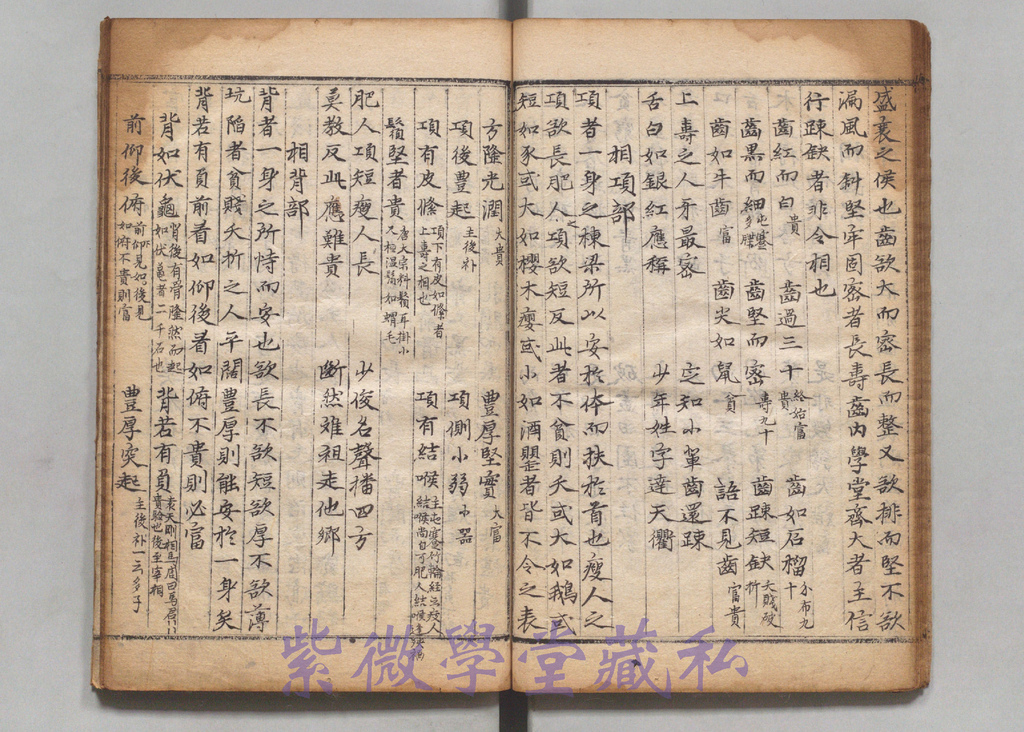 盛衰之侯也齒欲大而密長而整又欲排而堅不欲
漏風而斜堅牢固密者長壽齒內學堂齊大者主信
行踈缺者非令相也
齒紅而白 貴 齒過三十 給始富貴 齒如石榴 分布九十
齒黑而細 屯蹇多 齒堅而密 壽九十 齒踈短缺 夭賤破折
齒如牛齒 富 齒尖如鼠 貧 語不見齒 富貴
上壽之人牙最密 定知小輩齒還踈
舌白如銀紅應稱 少年姓字達天衢
相項部
項者一身之棟梁所以安於体而扶於首也瘦人之
項欲長肥人之項欲短反此者不貧則夭或大如鵝或
短如豕或大如櫻木癭或小如酒瓮者皆不令之表
方隆光潤 大貴 豐厚堅實 大富
項後豊起 主後补 項側小弱 小器
項有皮絛 項下有皮如絛者上壽之相也 項有結喉
鬚堅者貴 又相溫鬚如蝟毛
肥人項短瘦人長 少俊名聲播四方
莫教反此應難貴 斷然难祖走他鄉
相背部
背者一身之所恃而安也欲長不欲短欲厚不欲薄
坑陷者貧賤夭折之人平闊豊厚則能安於一身矣
背若有負前看如仰後看如俯不貴則必富
背如伏龜 背後有骨隆然而起如伏龜者二千石也 背若有負
前仰後俯 前仰見後見如俯不貴則富 豊厚突起 主後补一云多子
紫微學堂藏私